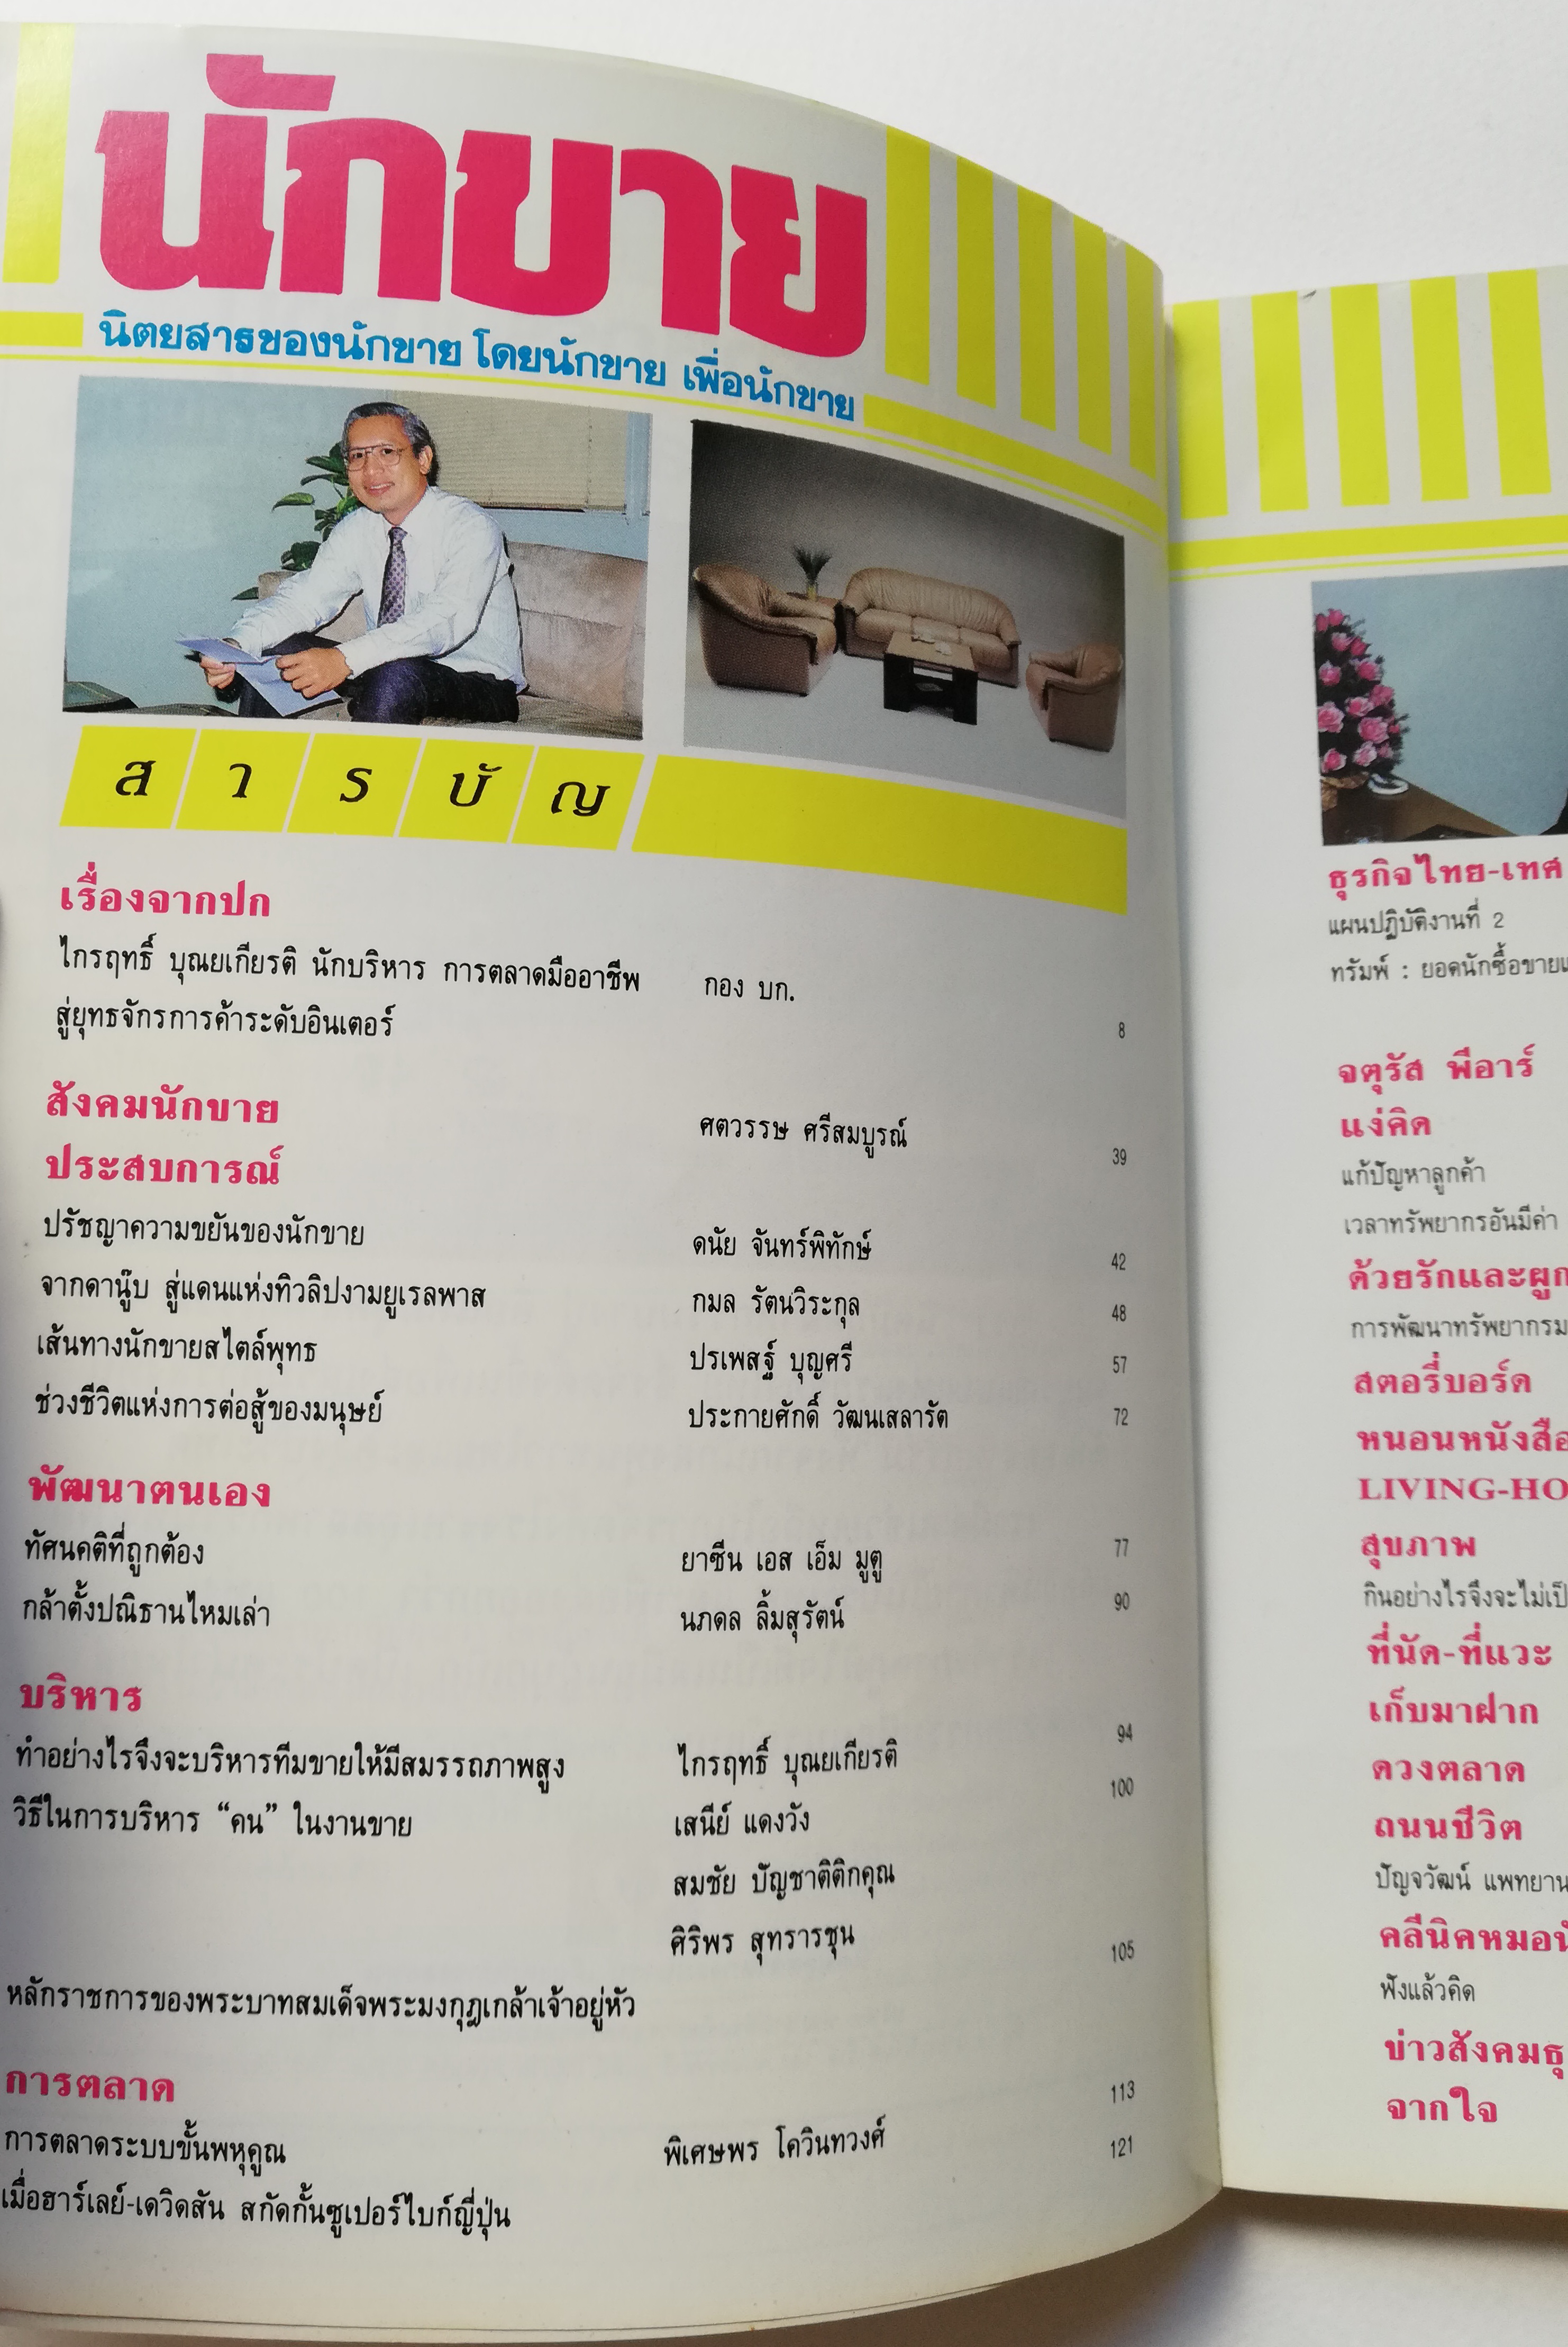 นักขาย
นิตยสารของนักขาย โดยนักขาย เพื่อนักขาย
สารบัญ
เรื่องจากปก
ไกรฤทธิ์ บุณยเกียรติ นักบริหาร การตลาดมืออาชีพ กอง บก.
สู่ยุทธจักรการค้าระดับอินเตอร์ 8
สังคมนักขาย ศตวรรษ ศรีสมบูรณ์ 39
ประสบการณ์
ปรัชญาความขยันของนักขาย ดนัย จันทร์พิทักษ์ 42
จากดานู๊บ สู่แดนแห่งทิวลิปงามยูเรลพาส กมล รัตนวิระกุล 48
เส้นทางนักขายสไตล์พุทธ ปรเพสฐ์ บุญศรี 57
ช่วงชีวิตแห่งการต่อสู้ของมนุษย์ ประกายศักดิ์ วัฒนเสลารัต 72
พัฒนาตนเอง
ทัศนคติที่ถูกต้อง ยาซีน เอส เอ็ม มูตู 77
กล้าตั้งปณิธานไหมเล่า นภดล ลิ้มสุรัตน์ 90
บริหาร
ทำอย่างไรจึงจะบริหารทีมขายให้มีสมรรถภาพสูง ไกรฤทธิ์ บุณยเกียรติ 94
วิธีในการบริหาร “คน” ในงานขาย เสนีย์ แดงวัง 100
สมชัย บัญชาติติกคุณ
ศิริพร สุทรารชุน
หลักราชการของพระบาทสมเด็จพระมงกุฎเกล้าเจ้าอยู่หัว 105
การตลาด
การตลาดระบบขั้นพหุคูณ พิเศษพร โควินทวงศ์ 113
เมื่อฮาร์เลย์-เดวิดสัน สกัดกั้นซูเปอร์ไบก์ญี่ปุ่น 121
ธุรกิจไทย-เทศ
แผนปฏิบัติงานที่ 2
ทรัมพ์ : ยอดนักซื้อขาย
จตุรัส พีอาร์
แง่คิด
แก้ปัญหาลูกค้า
เวลาทรัพยากรอันมีค่า
ด้วยรักและผูก
การพัฒนาทรัพยากรม
สตอรี่บอร์ด
หนอนหนังสือ
LIVING-HO
สุขภาพ
กินอย่างไรจึงจะไม่เป็
ที่นัด-ที่แวะ
เก็บมาฝาก
ดวงตลาด
ถนนชีวิต
ปัญจวัฒน์ แพทยาน
คลีนิคหมอนั
ฟังแล้วคิด
ข่าวสังคมธุ
จากใจ